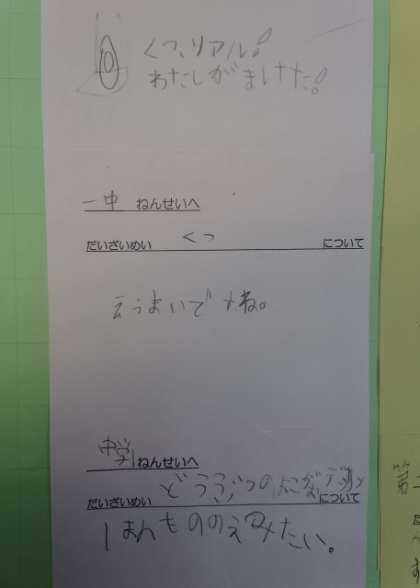 くつ、リアル!
わたしがまけた!
一中 ねんせいへ
だいざいめい くつ について
えうまいですね。
中学 ねんせいへ
だいざいめい どうぶつの について
ほんもののえみたい。